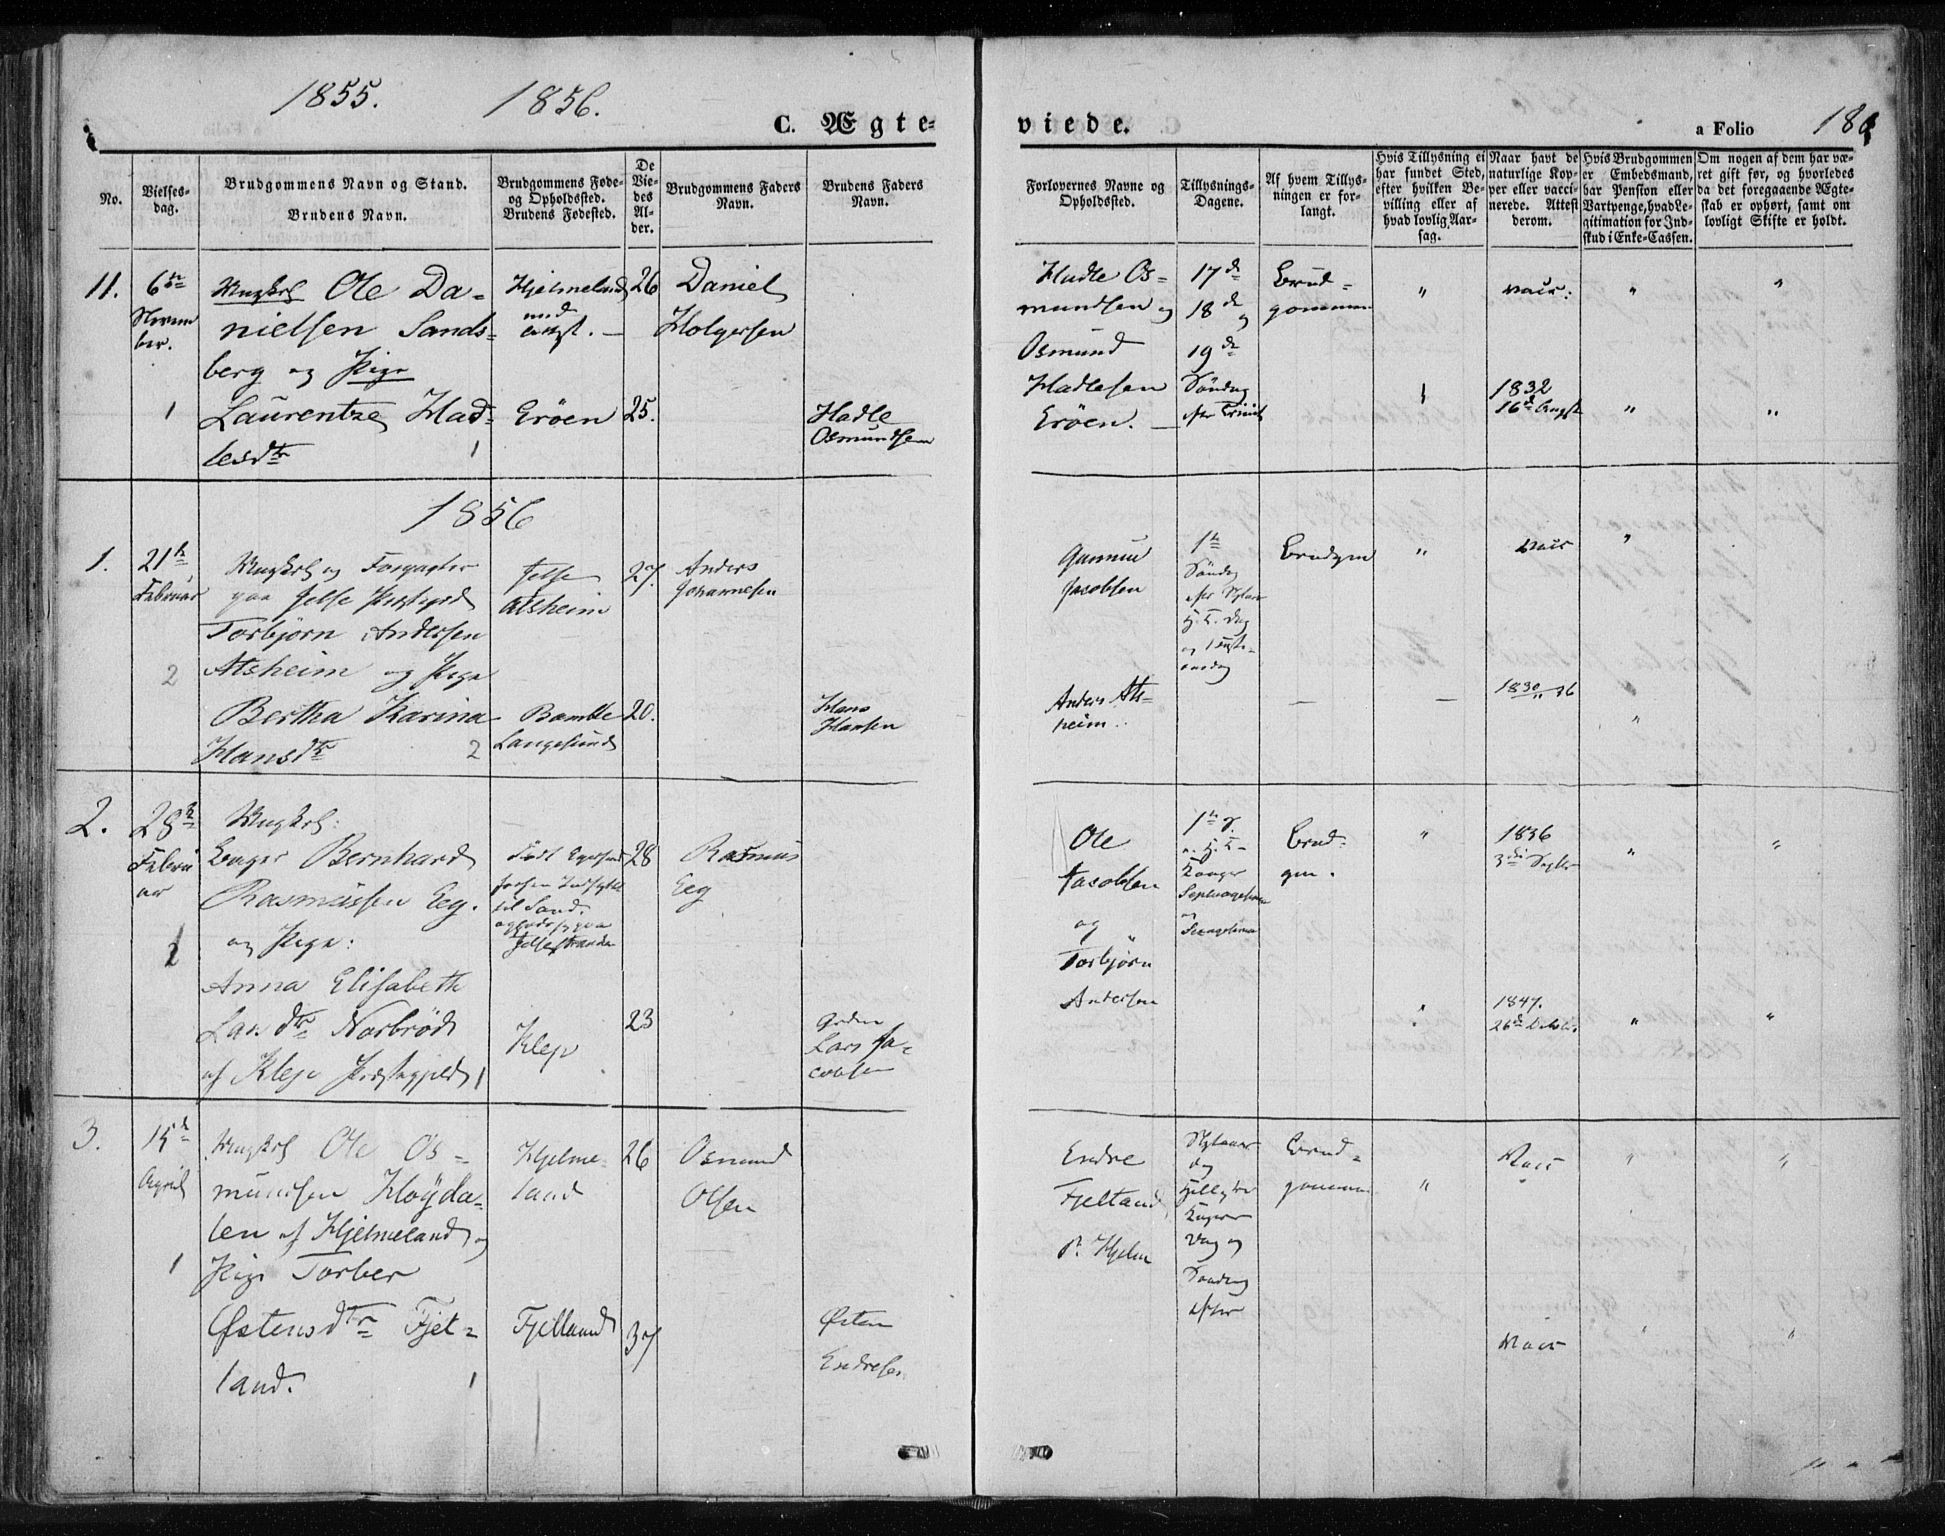 1855. 1856.
C. Ægte-
viede.
a Folio 180
No.
Vielses-
dag.
Brudgommens Navn og Stand.
Brudens Navn.
Brudgommens Føde-
og Opholdssted.
Brudens Fødested.
De
Vie-
des
Al-
der.
Brudgommens Faders
Navn.
Brudens Faders
Navn.
Forlovernes Navne og
Opholdssted.
Tillysnings-
Dagene.
Af hvem Tillys-
ningen er for-
langt.
Hvis Tillysning ei
har fundet Sted,
efter hvilken Be-
villing eller af
hvad lovlig Aar-
sag.
Naar havt de
naturlige Kop-
per eller vacci-
nerede. Attest
derom.
Hvis Brudgommen
er Embedsmand,
har Pension eller
Vartpenge, hvad Le-
gitimation for Ind-
skud i Enke-Cassen.
Om nogen af dem har væ-
ret gift før, og hvorledes
da det foregaaende Ægte-
skab er ophørt, samt om
lovligt Skifte er holdt.
11.
6te
Novem
ber.
1
Ungkrl Ole Da-
nielsen Sands-
berg og Pige
Laurentze Had-
lesdtr 1
Hjelmeland
Erøen
26
25.
Daniel
Holgersen
Hadle
Osmundsen
Hadle Os-
mundsen og
Osmund
Hadlesen
Erøen.
17de
18de og
19de
Søndag
efter Trinit
Brud-
gommen
" vacc: " "
1832
16de Augst " "
1856
1.
21de
Februar
2
Ungkrl og Forpagter
paa Jelse Præstegrd
Torbjørn Andersen
Atsheim og Pige
Bertha Karina
Hansdtr 2
Jelse
Atsheim
Bamble
Langesund
27.
20.
Anders
Johannesen
Hans
Hansen
Gunnar
Jacobsen
Anders Ats-
heim.
1te
Søndag
efter Nytaar
H. K. Dag
og
Brudgm
" vacc "
2.
28de
Febru
ar
Ungkrl:
Bernhard
Rasmussen Eeg.
og Pige:
Anna Elisabeth
Lars dtr Norbrød
af Klep Præstegjeld 1
Født Egersund
til Sand.
Jelsestranden
Klep
28
23
Rasmus
Eeg
Lars Ja-
cobsen
Ole
Jacobsen
og
Torbjørn
Andersen
1te S.
e. H. K-
Konger
Septuagesima
og
Sexagesima
Brud-
gm.
" 1836
3die Septbr " "
1847.
26de " "
3.
15de
April
1
Ungkrl Ole Os-
mundsen Høyda-
len af Hjelmeland og
Pige Torber
Østensdtr Fjet-
land. 1
Hjelme-
land
Fjetland
26
37
Osmund
Olsen
Østen
Endresen
Endre
Fjetland
Pr. Hjelm
Nytaars
dag
Hellig tre
Konger
Dag og
Søndag
efter
Brud-
gommen
" Vacc " "
Vacc " "